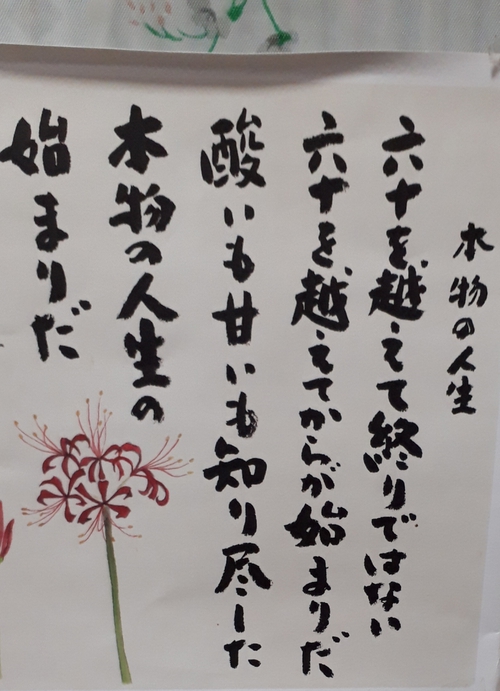 本物の人生
六十を越えて終りではない
六十を越えてからが始まりだ
酸いも甘いも知り尽した
本物の人生の
始まりだ